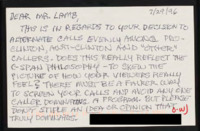 DEAR MR. LAMB, 7/29/96
THIS IS IN REGARDS TO YOUR DECISION TO
ALTERNATE CALLS EVENLY AMONG PRO-
CLINTON, ANTI-CLINTON AND "OTHER"
CALLERS. DOES THIS REALLY REFLECT THE
C-SPAN PHILOSOPHY - TO SKEW THE
PICTURE OF HOW YOUR VIEWERS REALLY
FEEL? THERE MUST BE A FAIRER WAY
TO SCREEN YOUR CALLS AND AVOID ANY ONE
CALLER DOMINATING A PROGRAM. BUT PLEASE
DON'T STIFLE AN IDEA OR OPINION THAT
TRULY DOMINATES.